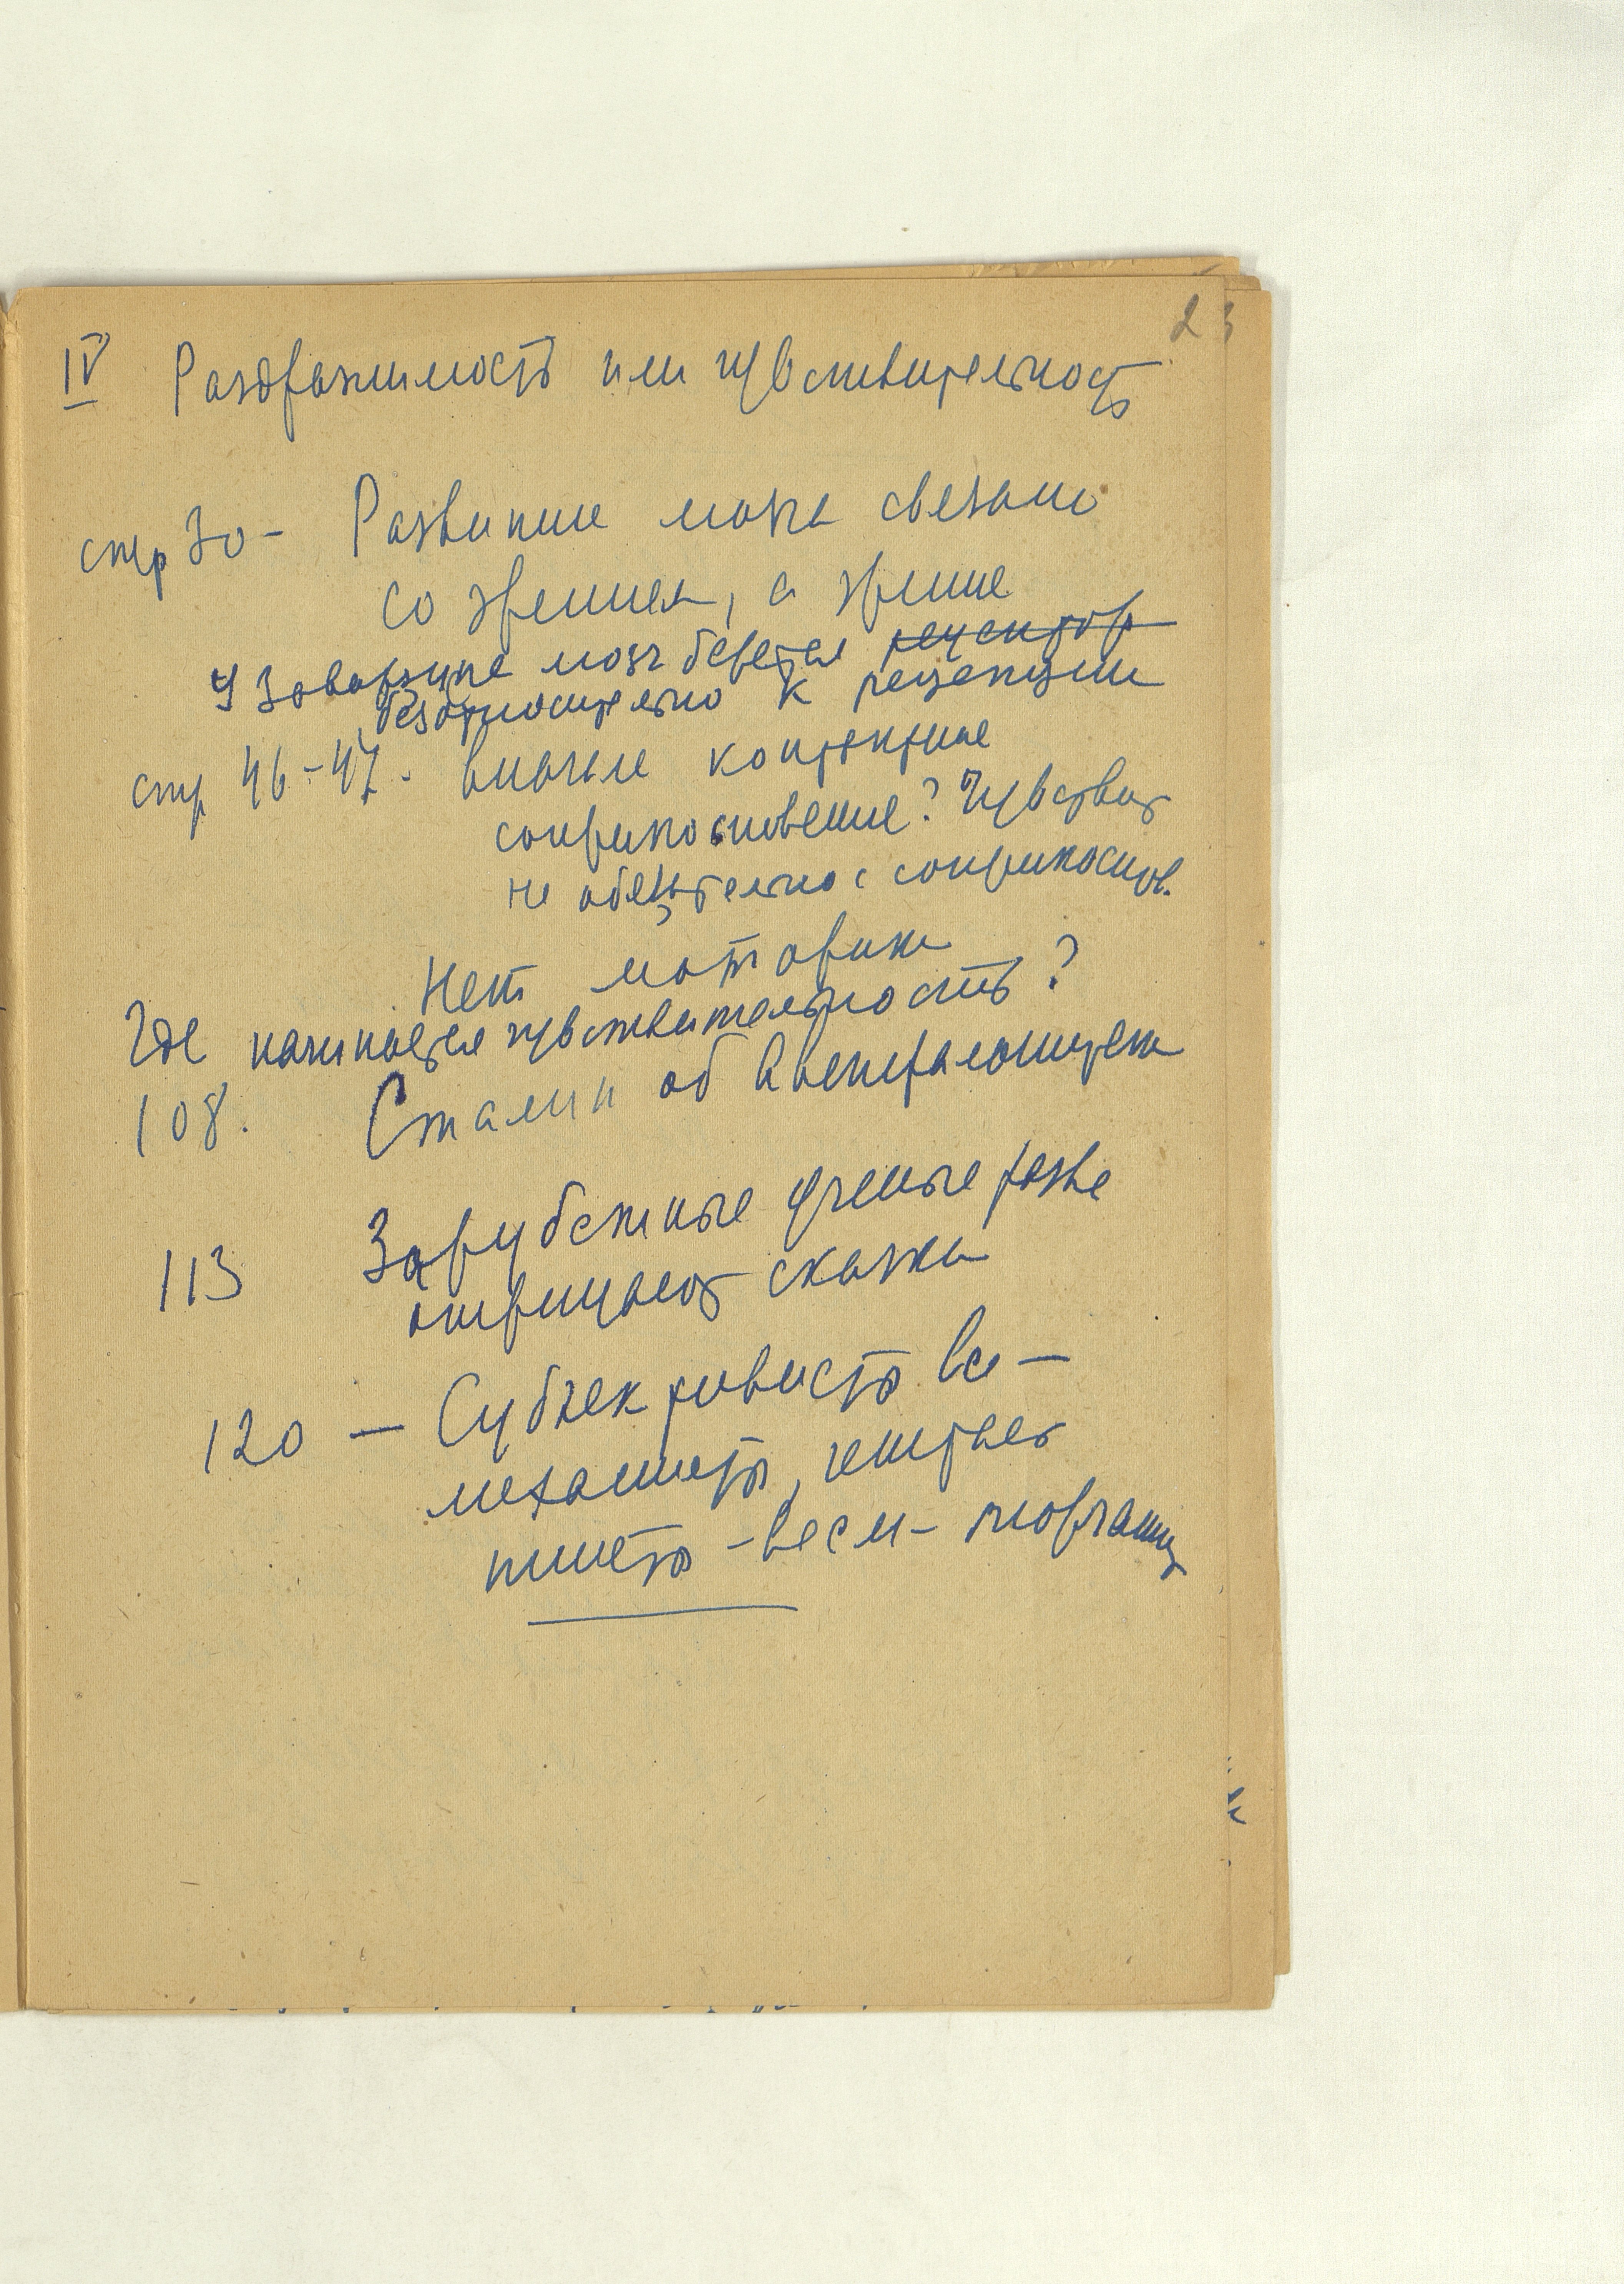 23
IV Раздражимость или чувствительность
стр 30 - Развитие мозга связано
со зрением, а зрение
У Заварзина мозг берется рецептор
безотносительно к рецепции
стр 46-47. вначале контактное
соприкосновение? Чувствит
не обязательно с соприкоснов.
Нет моторики
Где начинается чувствительность?
108. Сталин об
113 Зарубежные ученые разве
отрицают скачки
120 — Субъективисты все —
механисты,
— всем —